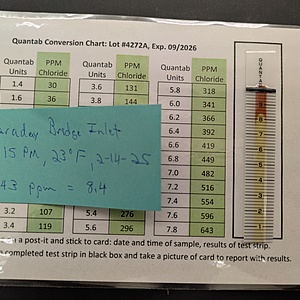 Quantab Conversion Chart: Lot #4272A, Exp. 09/2026
Quantab Units PPM Chloride Quantab Units PPM Chloride Quantab Units PPM Chloride
1.4 30 3.6 131 5.8 318
1.6 36 3.8 144 6.0 341
6.2 366
6.4 392
6.6 419
6.8 449
7.0 482
7.2 516
7.4 554
3.2 107 5.4 276 7.6 596
3.4 119 5.6 296 7.8 643
Bridge Inlet
15 PM, 23°F, 2-14-25
43 ppm = 8.4
a post-it and stick to card: date and time of sample, results of test strip.
completed test strip in black box and take a picture of card to report with results.
QUANTAB
8
7
6
5
4
3
2
1